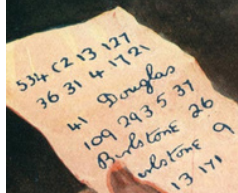 534 C2 13 127
36 31 4 17 21
41 Douglas
109 293 5 37
Birlstone 26
Birlstone 9
13 171